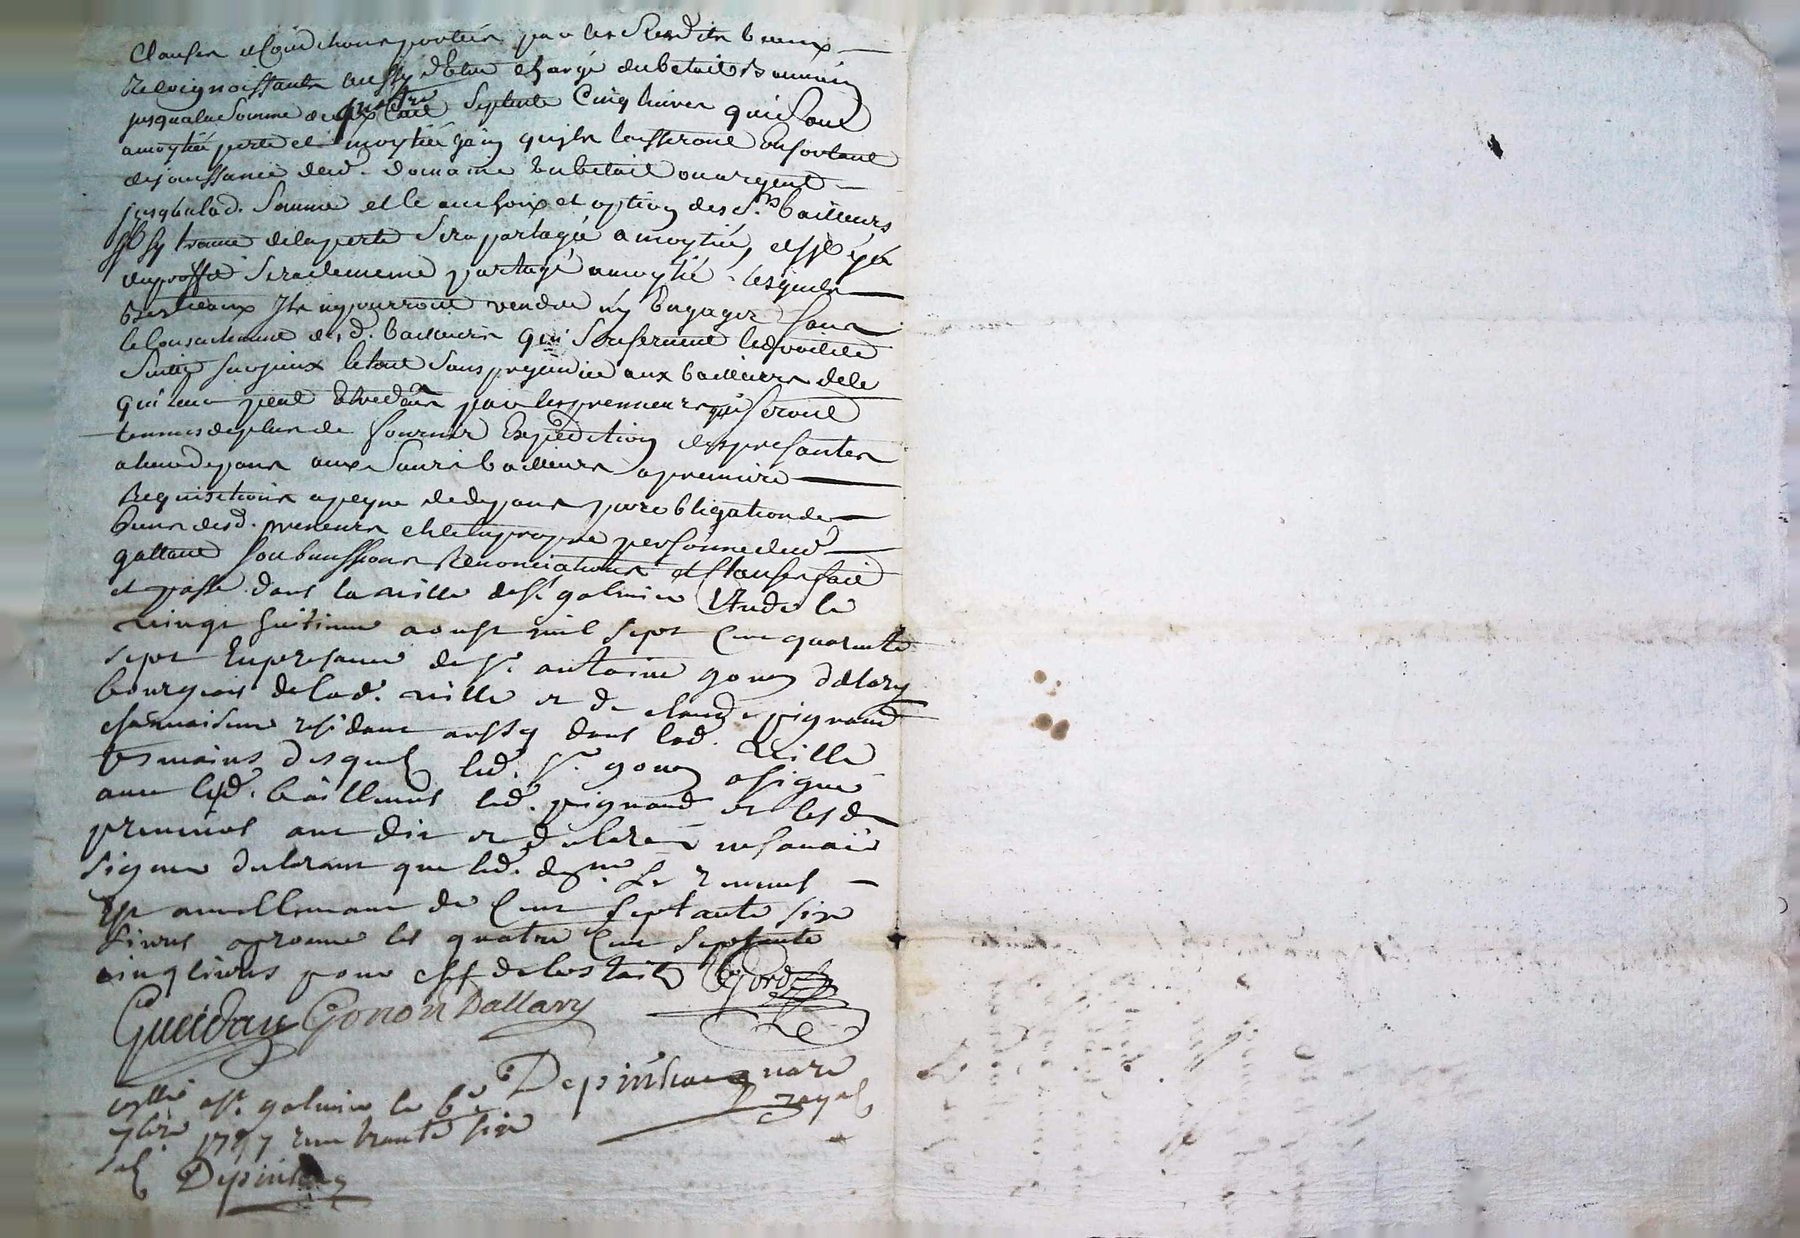 Clauses et Conditions portées par les susdits beaux
Recoignoissants aussy d'Etre chargé du betail
jusqua la somme de quatre Cent septente Cinq livres qui sont
a moytié perte et moytié gain quils laisseront en sortant
de jouissance dud. domaine en betail ou argent
jusqua lad. somme et le au choix et option des Srs bailleurs
sil sy trouve de la perte sera partagée a moytié, et sil y a
du proffit sera de meme partagé a moytié lesquels
bestieaux Ils ny pourront vendre ny Engager sans
le Consentement desd. bailleurs qui
le tout sans prejudice aux bailleurs de ce
qui leur peut Etre deub par les preneurs qui seront
tenus de plus de fournir Expedition des presantes
a leurs depans aux Sieurs bailleurs a premiere
Requisitions a peyne de depans par obligation de
biens desd. preneurs et de la propre personne dud.
gattand soubmissions Renonciations et Clauses fait
et passé dans la ville de St galmier Etude le
vingt huitieme aoust mil sept Cent quarente
sept En presance de Sr. antoine gonon dalary
bourgeois de lad. ville et de claude pignand
residant aussy dans lad. Ville
tesmoins desquels led. Sr. gonon a signé
avec lesd. bailleurs led. pignand et lesd.
preneurs ont dit et declaré ne savoir
signer declarant que led. dsme Le revenus
Est annuellement de Cent septante six
livres aprouvé les quatre Cent septante
cinq livres pour
Gueidan Gonon Dallary
Depinhac nore
royal
collé a St. galmier le 6e
7bre 1747 recu trante six
sols Depinhac